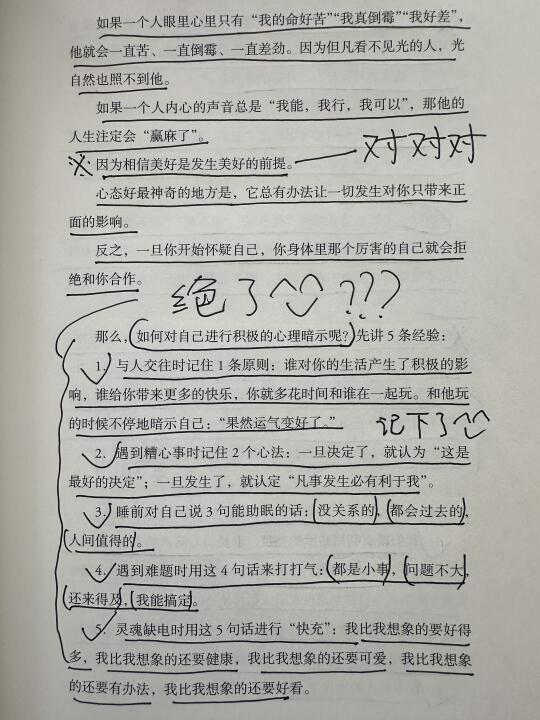 如果一个人眼里心里只有“我的命好苦”“我真倒霉”“我好差”，
他就会一直苦、一直倒霉、一直差劲。因为但凡看不见光的人，光
自然也照不到他。
如果一个人内心的声音总是“我能，我行，我可以”，那他的
人生注定会“赢麻了”。
※因为相信美好是发生美好的前提。 对对对
心态好最神奇的地方是，它总有办法让一切发生对你只带来正
面的影响。
反之，一旦你开始怀疑自己，你身体里那个厉害的自己就会拒
绝和你合作。
绝了^^???
那么，如何对自己进行积极的心理暗示呢？先讲 5 条经验：
1. 与人交往时记住 1 条原则：谁对你的生活产生了积极的影
响，谁给你带来更多的快乐，你就多花时间和谁在一起玩。和他玩
的时候不停地暗示自己：“果然运气变好了。”
记下了^^
2. 遇到糟心事时记住 2 个心法：一旦决定了，就认为“这是
最好的决定”；一旦发生了，就认定“凡事发生必有利于我”。
3. 睡前对自己说 3 句能助眠的话：没关系的，都会过去的，
人间值得的。
4. 遇到难题时用这 4 句话来打打气：都是小事，问题不大，
还来得及，我能搞定。
5. 灵魂缺电时用这 5 句话进行“快充”：我比我想象的要好得
多，我比我想象的还要健康，我比我想象的还要可爱，我比我想象
的还要有办法，我比我想象的还要好看。